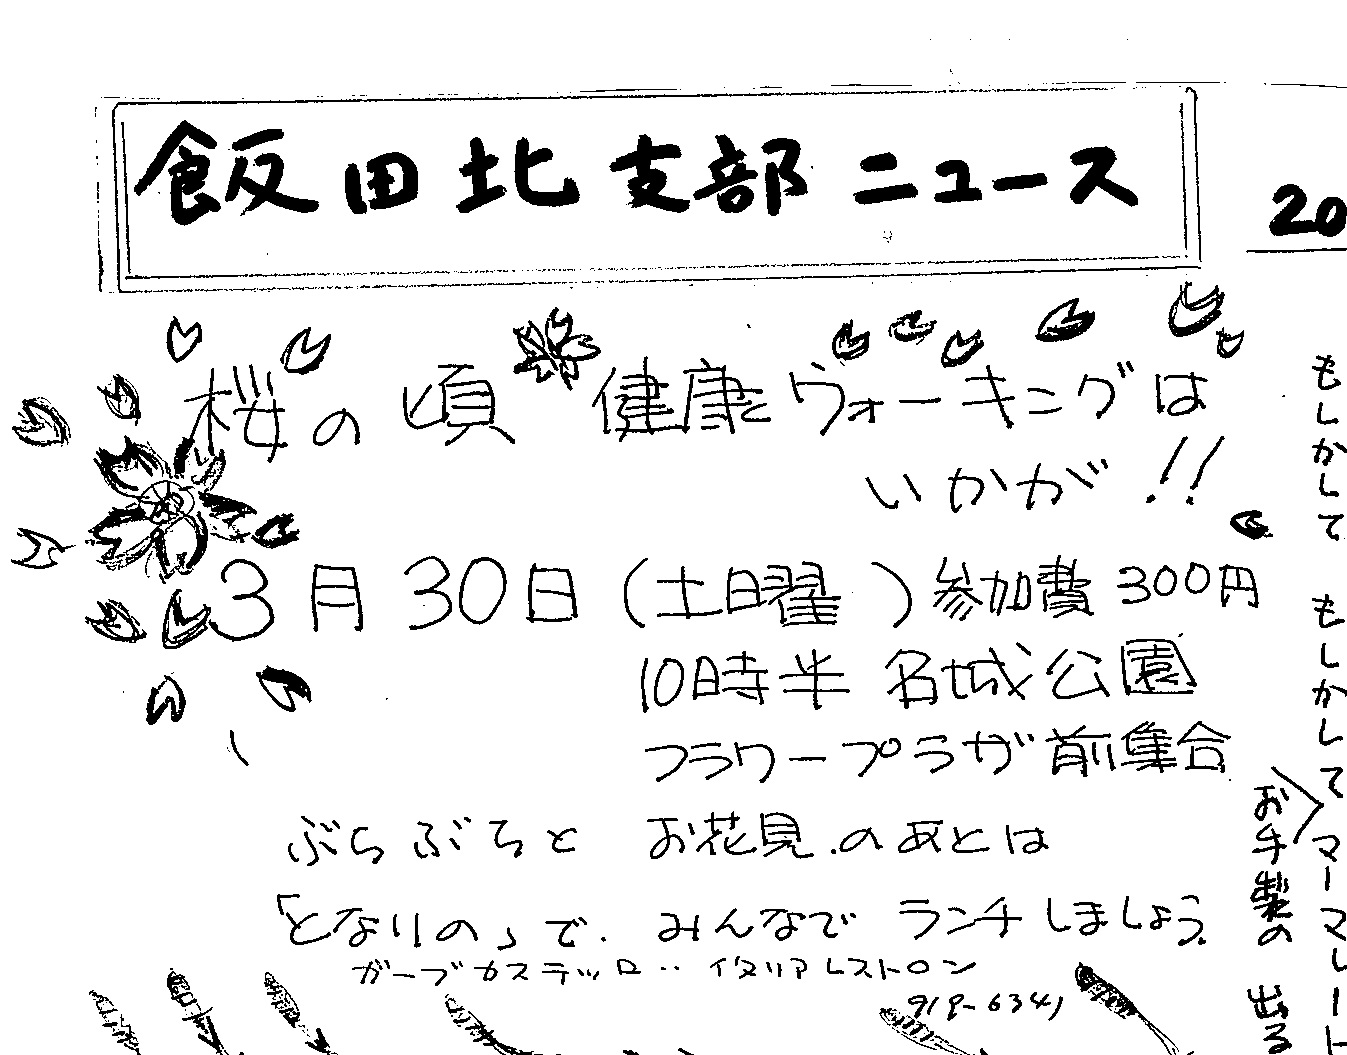 飯田北支部ニュース
20
桜の頃 健康ウォーキングは
いかが!!
3月30日(土曜)参加費300円
10時半 名城公園
フラワープラザ前集合
ぶらぶらと お花見.のあとは
「となりの」で.みんなで ランチしましょう.
ガーブカステッロ‥イタリアレストロン
919-6341
もしかして もしかして マーマレート
お手製の 出る